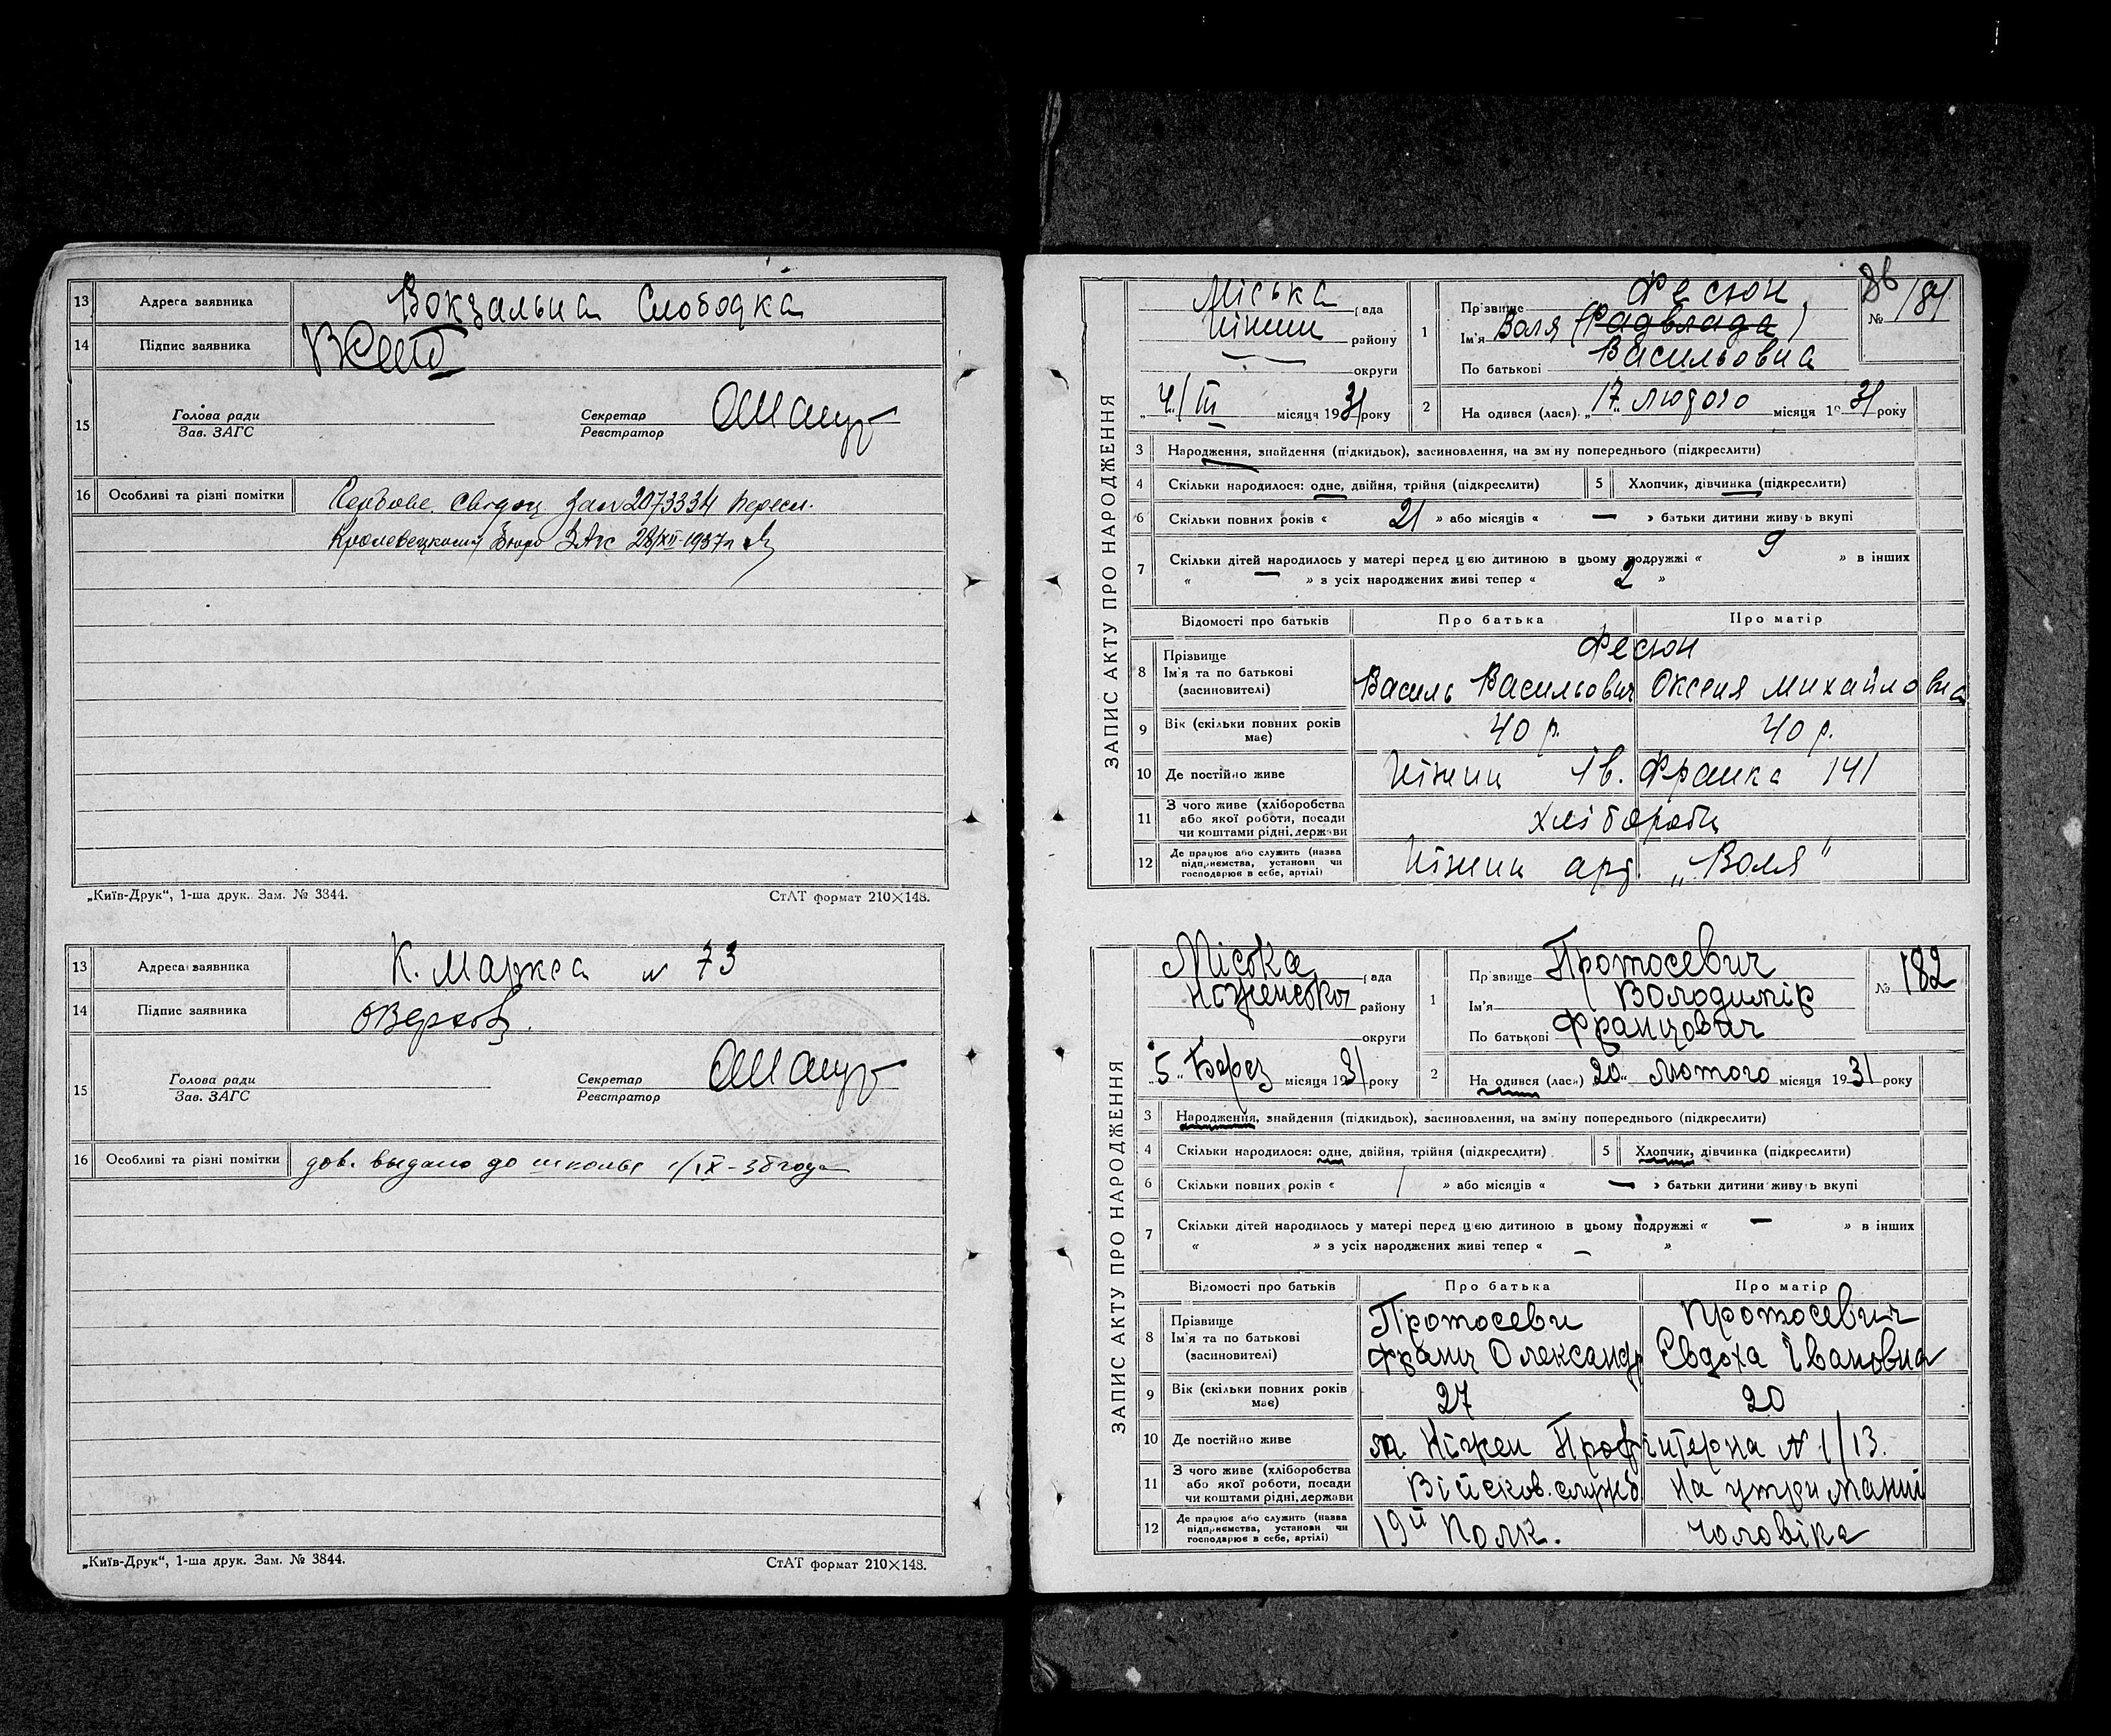 13 Адреса заявника Вокзальна Слободка
14 Підпис заявника
15 Голова ради Секретар
Зав. ЗАГС Реєстратор
16 Особливі та різні помітки свідоц. 2073334
28/XII-1937
„Київ-Друк“, 1-ша друк. Зам. № 3844. СтАТ формат 210×148.
13 Адреса заявника К. Маркса № 73
14 Підпис заявника
15 Голова ради Секретар
Зав. ЗАГС Реєстратор
16 Особливі та різні помітки дов. выдано до школы 1/IX-38 года
„Київ-Друк“, 1-ша друк. Зам. № 3844. СтАТ формат 210×148.
ЗАПИС АКТУ ПРО НАРОДЖЕННЯ
Міська рада
Ніжин району
округи
„4“/III місяця 1931 року
1 Прізвище Фесюн
Ім'я Воля (Радвлада)
По батькові Васильовна
№ 181
36
2 На одився (лася) „17“ лютого місяця 1931 року
3 Народження, знайдення (підкидьок), засиновлення, на зміну попереднього (підкреслити)
4 Скільки народилося: одне, двійня, трійня (підкреслити) 5 Хлопчик, дівчинка (підкреслити)
6 Скільки повних років « 21 » або місяців « — » батьки дитини живуть вкупі
7 Скільки дітей народилось у матері перед цією дитиною в цьому подружжі « 9 » в інших
« — » з усіх народжених живі тепер « 2 »
Відомості про батьків Про батька Про матір
8 Прізвище Ім'я та по батькові (засиновителі) Фесюн
Василь Васильович Оксеня Михайловна
9 Вік (скільки повних років має) 40 р. 40 р.
10 Де постійно живе Ніжин Ів. Франка 141
11 З чого живе (хліборобства або якої роботи, посади чи коштами рідні, держави хлібороби
12 Де працює або служить (назва підприємства, установи чи господарює в себе, артілі) Ніжин арт. „Воля“
ЗАПИС АКТУ ПРО НАРОДЖЕННЯ
Міська рада
Ніженськ району
округи
„5“ Берез місяця 1931 року
1 Прізвище Протосевич
Ім'я Володимір
По батькові Францович
№ 182
2 На одився (лася) „20“ лютого місяця 1931 року
3 Народження, знайдення (підкидьок), засиновлення, на зміну попереднього (підкреслити)
4 Скільки народилося: одне, двійня, трійня (підкреслити) 5 Хлопчик, дівчинка (підкреслити)
6 Скільки повних років « 1 » або місяців « — » батьки дитини живуть вкупі
7 Скільки дітей народилось у матері перед цією дитиною в цьому подружжі « — » в інших
« » з усіх народжених живі тепер « — »
Відомості про батьків Про батька Про матір
8 Прізвище Ім'я та по батькові (засиновителі) Протосеви Протосевич
Франц Олександр Євдоха Івановна
9 Вік (скільки повних років має) 27 20
10 Де постійно живе м Ніжен Профінтерна № 1/13.
11 З чого живе (хліборобства або якої роботи, посади чи коштами рідні, держави Війсков. служб На утриманні
12 Де працює або служить (назва підприємства, установи чи господарює в себе, артілі) 19й Полк. чоловіка